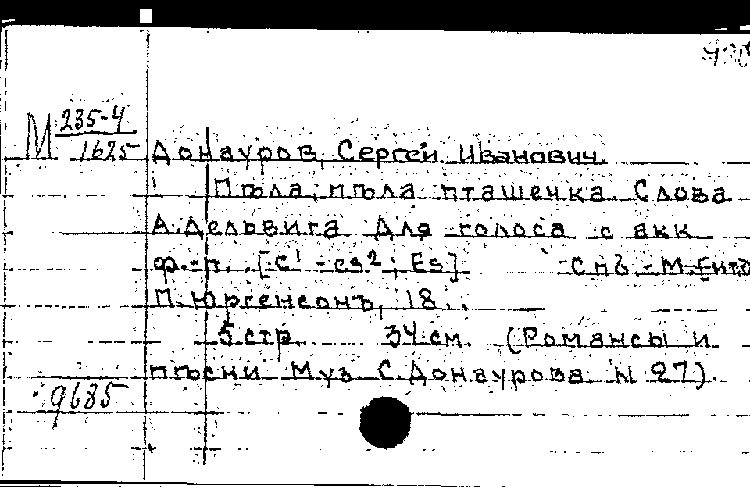 М 235-4
1625
Донауров, Сергей Иванович.
Пѣла, пѣла пташечка. Слова
А. Дельвига Для голоса с акк
ф.-п. [c¹ - es²; Es] СПб - М.
П. Юргенсонъ, 18..
5 стр. 34 см. (Романсы и
пѣсни Муз С. Донаурова № 27).
9685